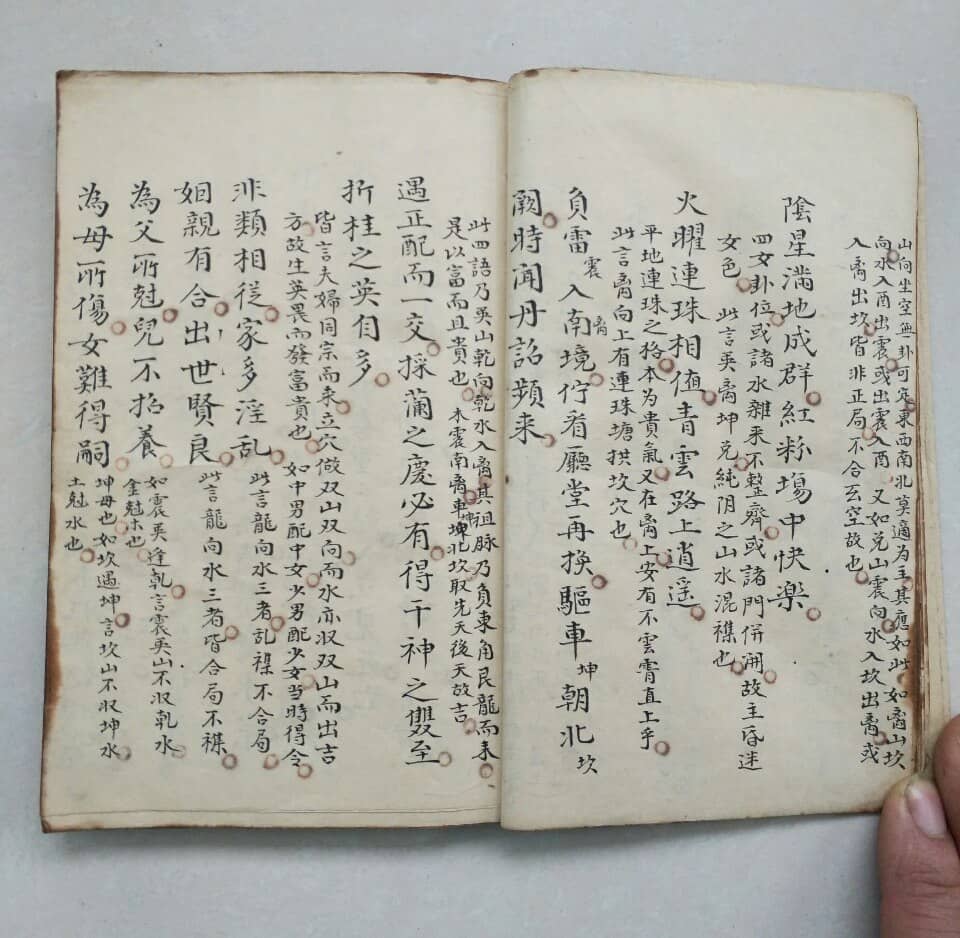 山向坐空無卦可定東西南北莫適為主其應如此如离山坎
向水入酉出震或出震入酉又如兑山震向水入坎出离或
入离出坎皆非正局不合玄空故也
陰星满地成群紅粉塲中快樂
四女卦位或諸水雜来不整齊或諸門併開故主昏迷
女色此言巽离坤兑純阴之山水混襍也
火曜連珠相值青雲路上逍遥
平地連珠之格本為貴氣又在离上安有不雲霄直上乎
此言离向上有連珠塘拱坎穴也
負雷震入南离境佇看廳堂再換驅車坤朝北坎
闕時聞丹詔頻来
此四語乃巽山乾向乾水入离其祖脉乃負東角艮龍而来
是以富而且貴也木震南离車坤北坎取先天後天故言
遇正配而一交採蘭之慶必有得干神之雙至
折桂之英自多
皆言夫婦同宗而来立穴做双山双向而水亦収双山而出吉
方故生英畏而發富貴也如中男配中女少男配少女当時得令
非類相従家多淫乱此言龍向水三者乱襍不合局
姻親有合出世賢良此言龍向水三者皆合局不襍
為父所尅兒不招養如震巽逢乾言震巽山不収乾水
金尅木也
為母所傷女難得嗣坤母也如坎遇坤言坎山不収坤水
土尅水也